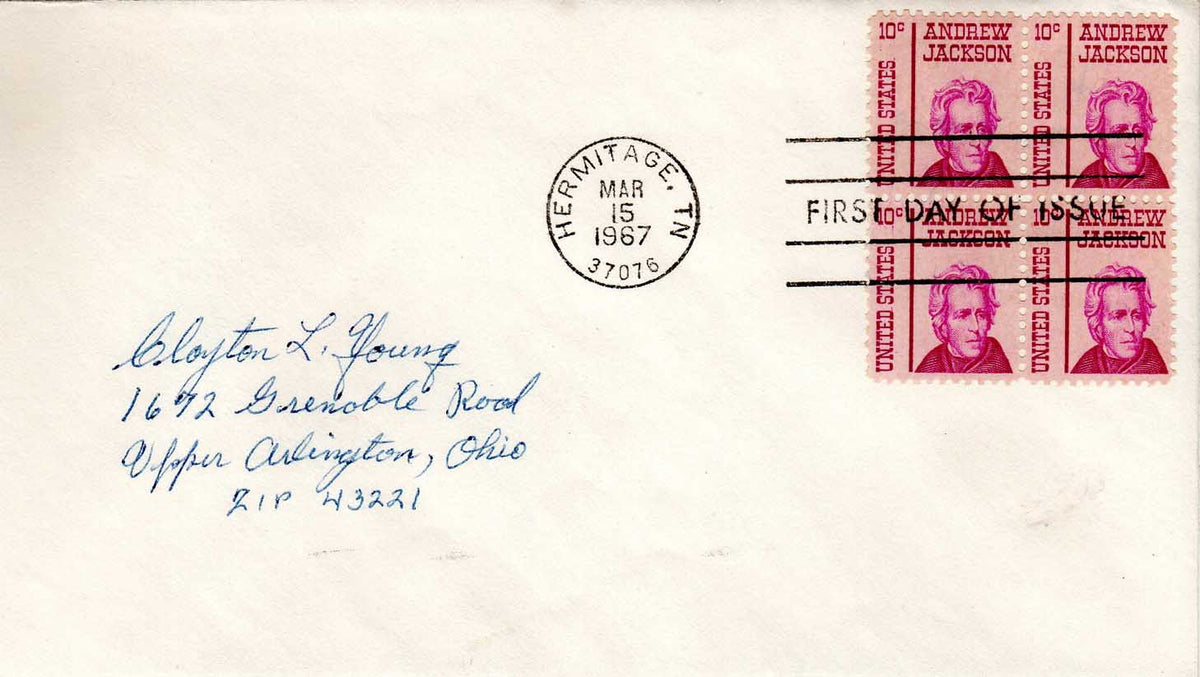 10¢ ANDREW JACKSON UNITED STATES
10¢ ANDREW JACKSON UNITED STATES
10¢ ANDREW JACKSON UNITED STATES
10¢ ANDREW JACKSON UNITED STATES
HERMITAGE, TN
MAR
15
1967
37076
FIRST DAY OF ISSUE
Clayton L. Young
1672 Grenoble Road
Upper Arlington, Ohio
ZIP 43221